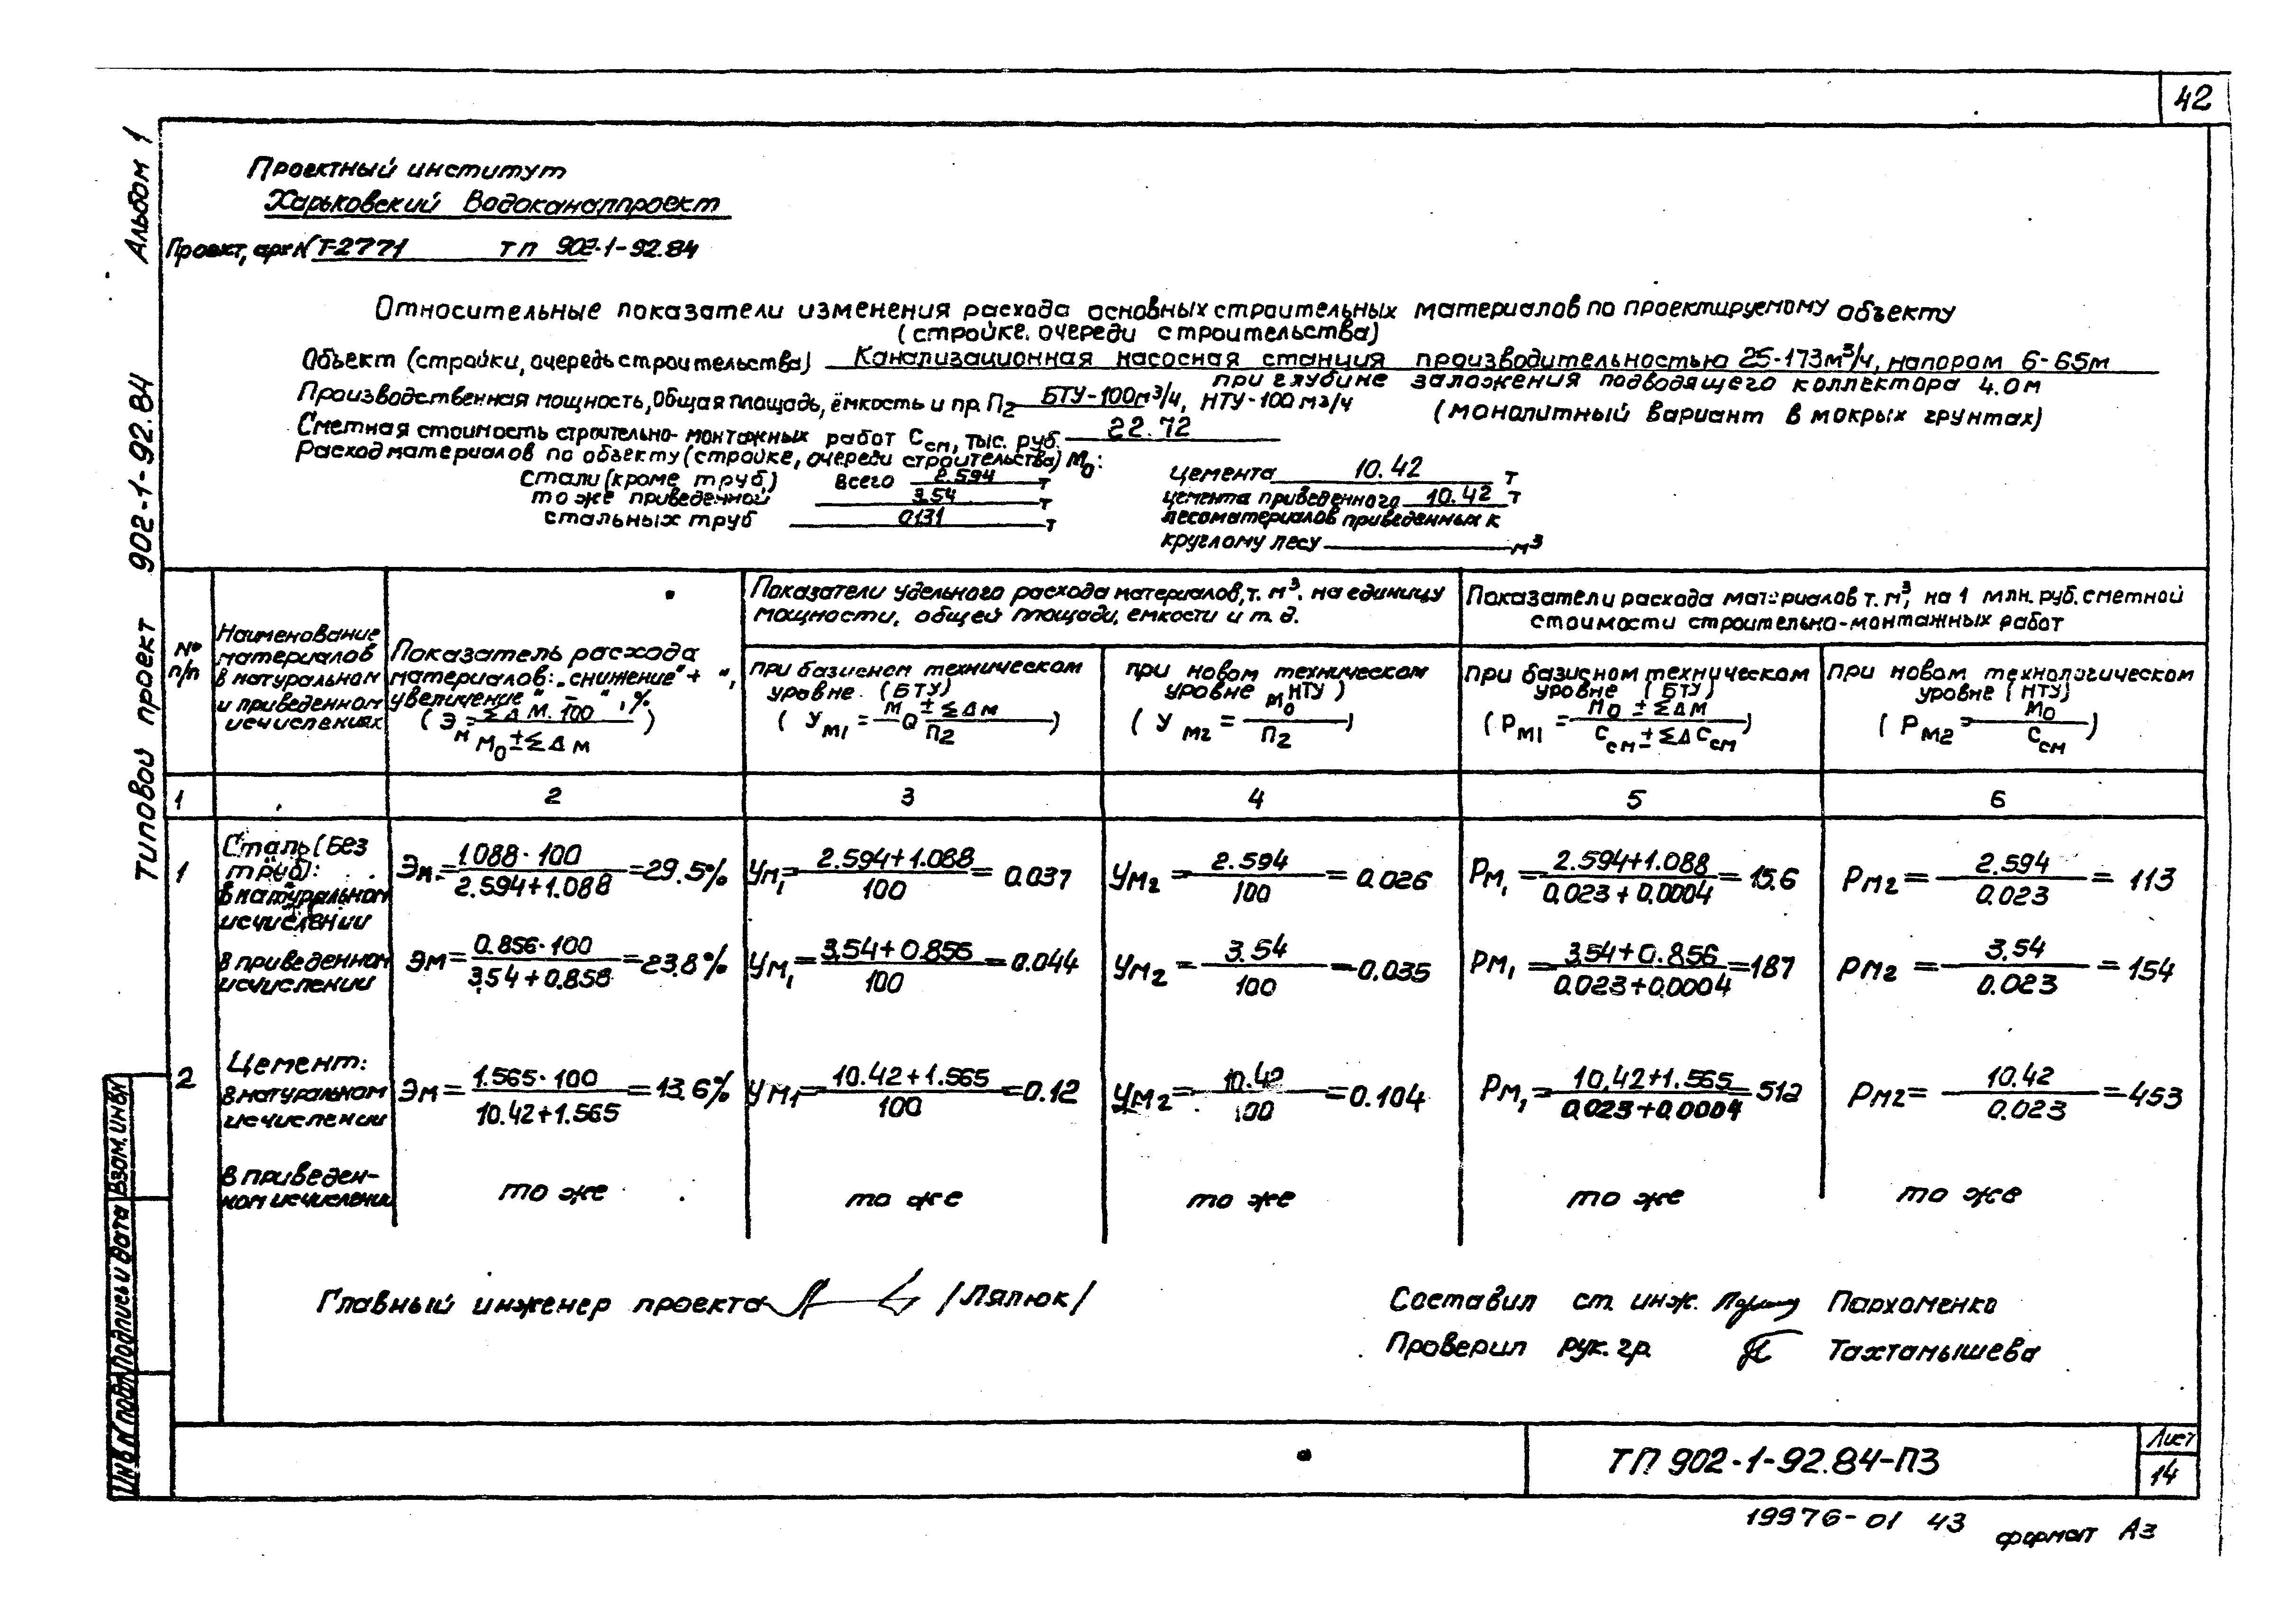 42
Альбом 1
Типовой проект 902-1-92.84
Проектный институт
Харьковский Водоканалпроект
Проект, арх N Т-2771 ТП 902-1-92.84
Относительные показатели изменения расхода основных строительных материалов по проектируемому объекту
(стройке, очереди строительства)
Объект (стройки, очередь строительства) Канализационная насосная станция производительностью 25-173м³/ч, напором 6-65м
при глубине заложения подводящего коллектора 4.0м
Производственная мощность, общая площадь, ёмкость и пр. П2 БТУ-100м³/ч, НТУ-100м³/ч (монолитный вариант в мокрых грунтах)
Сметная стоимость строительно-монтажных работ Ссм, тыс. руб. 22.72
Расход материалов по объекту (стройке, очереди строительства) М0:
Стали (кроме труб) всего 2.594 т
то же приведенной 3.54 т
стальных труб 0131 т
цемента 10.42 т
цемента приведенного 10.42 т
лесоматериалов приведенных к
круглому лесу м³
№ п/п
Наименование материалов в натуральном и приведенном исчислениях
Показатель расхода материалов: „снижение" + ", увеличение" - ", %
( Эм = ΣΔМ·100 / М0 ± ΣΔм )
Показатели удельного расхода материалов, т. м³. на единицу мощности, общей площади, емкости и т. д.
при базисном техническом уровне (БТУ)
( Ум1 = М0 ± ΣΔм / П2 )
при новом техническом уровне НТУ)
( Ум2 = М0 / П2 )
Показатели расхода материалов т. м³, на 1 млн. руб. сметной стоимости строительно-монтажных работ
при базисном техническом уровне (БТУ)
( Рм1 = М0 ± ΣΔМ / Ссм ± ΣΔСсм )
при новом технологическом уровне (НТУ)
( Рм2 = М0 / Ссм )
1 2 3 4 5 6
1 Сталь (без труб):
в натуральном исчислении
Эм = 1.088·100 / 2.594+1.088 = 29.5%
Ум1 = 2.594+1.088 / 100 = 0.037
Ум2 = 2.594 / 100 = 0.026
Рм1 = 2.594+1.088 / 0.023+0.0004 = 156
Рм2 = 2.594 / 0.023 = 113
в приведенном исчислении
Эм = 0.856·100 / 3.54+0.856 = 23.8%
Ум1 = 3.54+0.856 / 100 = 0.044
Ум2 = 3.54 / 100 = 0.035
Рм1 = 3.54+0.856 / 0.023+0.0004 = 187
Рм2 = 3.54 / 0.023 = 154
2 Цемент:
в натуральном исчислении
Эм = 1.565·100 / 10.42+1.565 = 13.6%
Ум1 = 10.42+1.565 / 100 = 0.12
Ум2 = 10.42 / 100 = 0.104
Рм1 = 10.42+1.565 / 0.023+0.0004 = 512
Рм2 = 10.42 / 0.023 = 453
в приведенном исчислении
то же то же то же то же то же
Главный инженер проекта /Лялюк/
Составил ст. инж. Пархоменко
Проверил рук. гр. Тахтамышева
Взам. инв N
Подпись и дата
Инв N подл
ТП 902-1-92.84-ПЗ
Лист
14
19976-01 43
формат А3